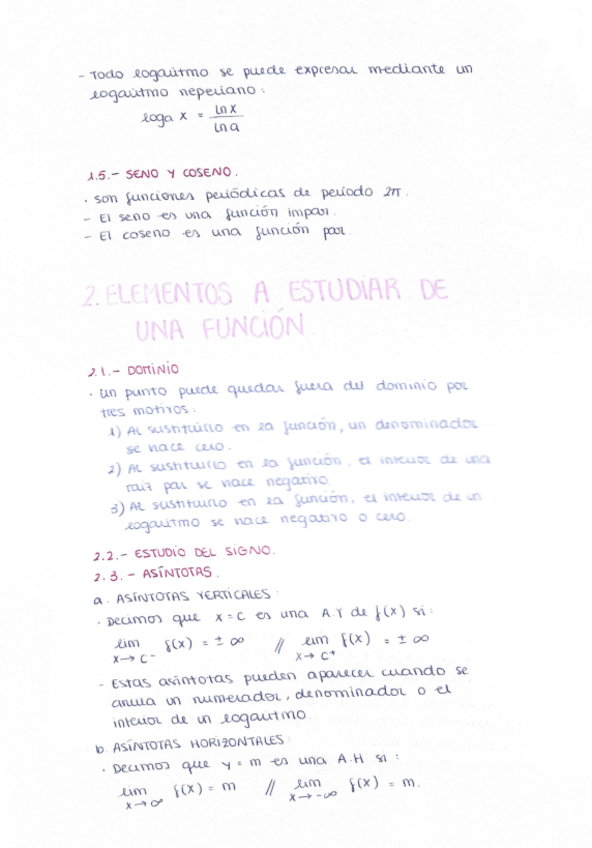 - Todo logaritmo se puede expresar mediante un
logaritmo neperiano:
loga x = ln x / ln a
1.5.- SENO Y COSENO.
· Son funciones periódicas de período 2π.
- El seno es una función impar.
- El coseno es una función par.
2. ELEMENTOS A ESTUDIAR DE
UNA FUNCIÓN.
2.1.- DOMINIO
· Un punto puede quedar fuera del dominio por
tres motivos:
1) Al sustituirlo en la función, un denominador
se hace cero.
2) Al sustituirlo en la función, el interior de una
raíz par se hace negativo.
3) Al sustituirlo en la función, el interior de un
logaritmo se hace negativo o cero.
2.2.- ESTUDIO DEL SIGNO.
2.3.- ASÍNTOTAS.
a. ASÍNTOTAS VERTICALES:
· Decimos que x=c es una A.V de f(x) si:
lim x→c⁻ f(x) = ±∞ // lim x→c⁺ f(x) = ±∞
- Estas asíntotas pueden aparecer cuando se
anula un numerador, denominador o el
interior de un logaritmo.
b. ASÍNTOTAS HORIZONTALES:
· Decimos que y=m es una A.H si:
lim x→∞ f(x) = m // lim x→-∞ f(x) = m.